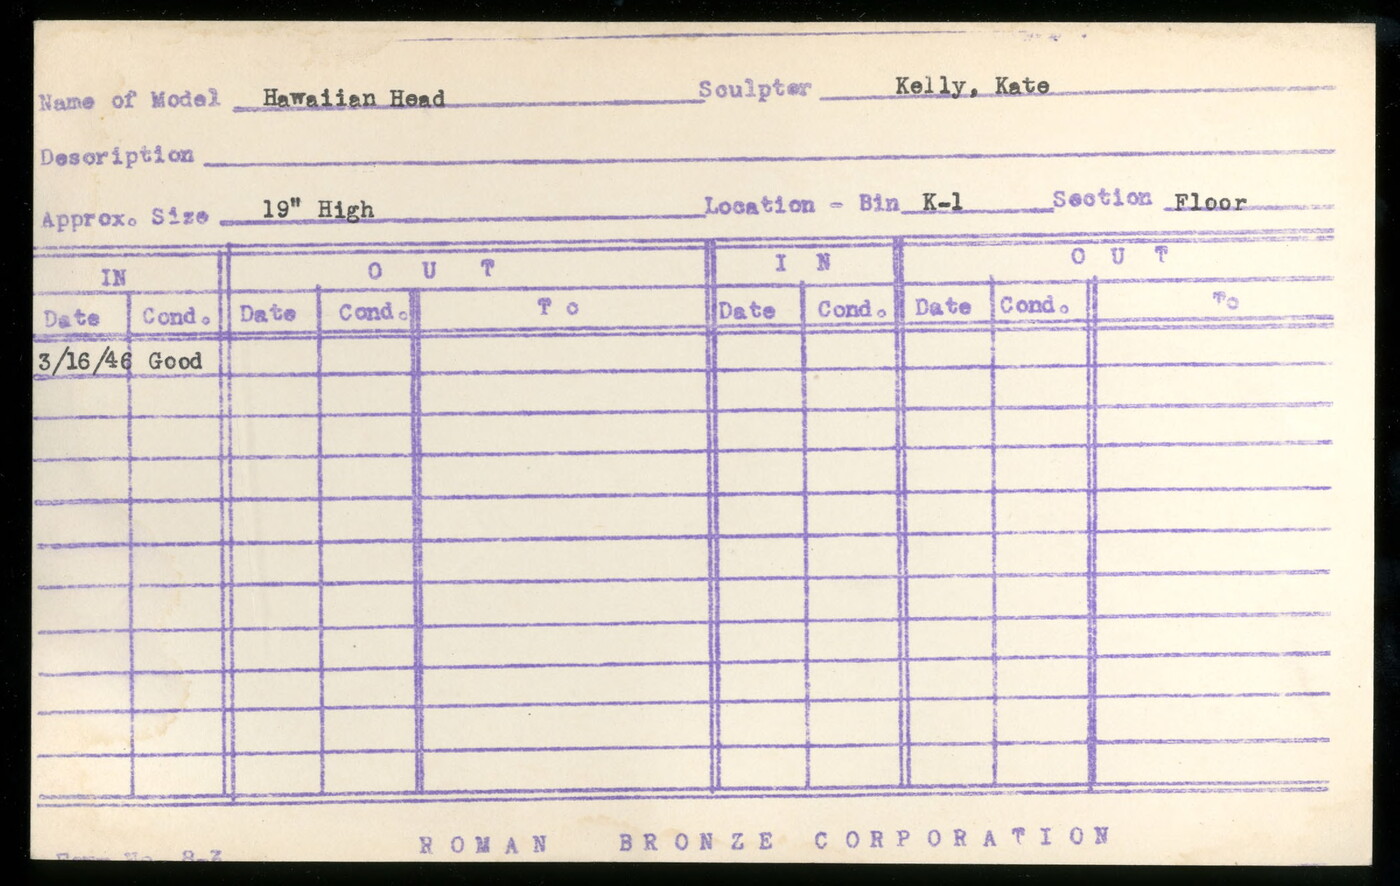 Name of Model Hawaiian Head Sculptor Kelly, Kate
Description
Approx. Size 19" High Location - Bin K-1 Section Floor
IN OUT IN OUT
Date Cond. Date Cond. To Date Cond. Date Cond. To
3/16/46 Good
ROMAN BRONZE CORPORATION
Form No. 8-3